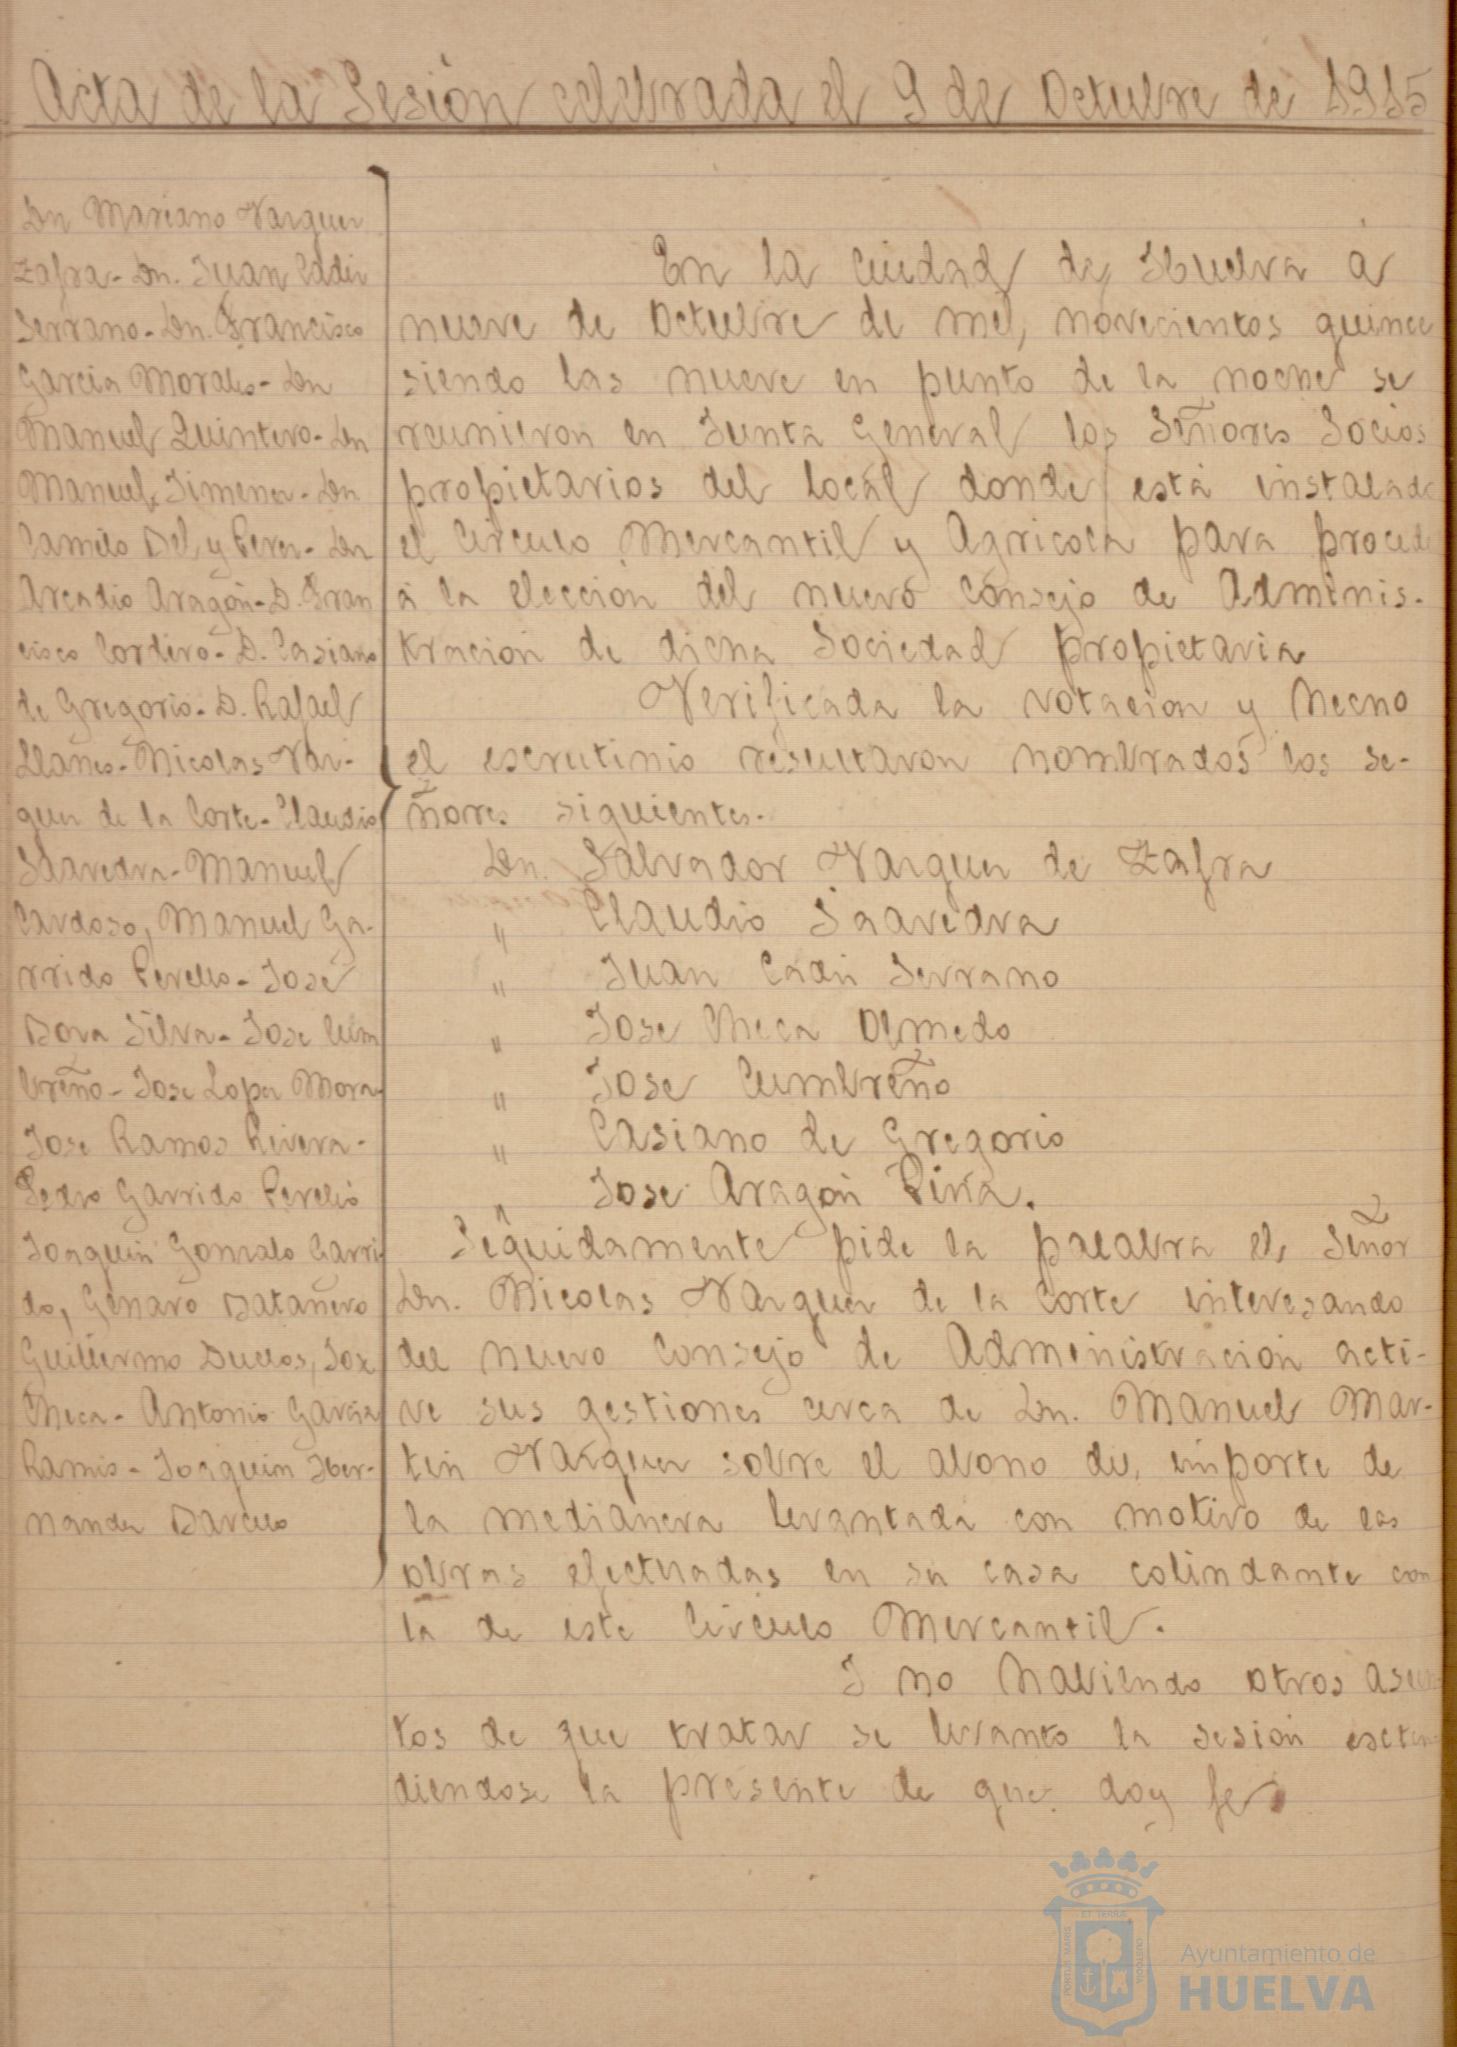 Acta de la Sesión celebrada el 9 de Octubre de 1915
Dn Mariano Vazquez
Zafra- Dn. Juan Cádiz
Serrano- Dn. Francisco
Garcia Morales- Dn
Manuel Quintero- Dn
Manuel Jimenez- Dn
Camilo Bel y Perez- Dn
Arcadio Aragón- D. Fran
cisco Cordero- D. Casiano
de Gregorio- D. Rafael
Llanes- Nicolas Vaz-
quez de la Corte- Claudio
Saavedra- Manuel
Cardoso, Manuel Ga-
rrido Perello- José
Silva- Jose Cum
breño- Jose Lopez Mora-
Jose Ramos Rivera-
Pedro Garrido Perelló
Joaquin Gonzalo Garri
do, Genaro Batañero
Guillermo Duclos, Jose
Checa- Antonio Garcia
Ramis- Joaquin Her-
nandez Barculo
En la Ciudad de Huelva á
nueve de Octubre de mil, novecientos quince
siendo las nueve en punto de la noche se
reunieron en Junta General los Señores Socios
propietarios del local donde está instalado
el Circulo Mercantil y Agricola para proceder
á la elección del nuevo Consejo de Adminis-
tracion de dicha Sociedad propietaria
Verificada la votacion y hecho
el escrutinio resultaron nombrados los se-
ñores siguientes.
Dn. Salvador Vazquez de Zafra
" Claudio Saavedra
" Juan Cadiz Serrano
" Jose Checa Olmedo
" Jose Cumbreño
" Casiano de Gregorio
" Jose Aragón Piña.
Seguidamente pide la palabra el Señor
Dn. Nicolas Vazquez de la Corte interesando
del nuevo Consejo de Administracion acti-
ve sus gestiones cerca de Dn. Manuel Mar-
tin Vazquez sobre el abono de, importe de
la medianera levantada con motivo de las
obras efectuadas en su casa colindante con
la de este Circulo Mercantil.
I no habiendo otros asun-
tos de que tratar se levantó la sesión exten-
diendose la presente de que doy fe
PORTUS MARIS ET TERRÆ CUSTODIA
Ayuntamiento de
HUELVA